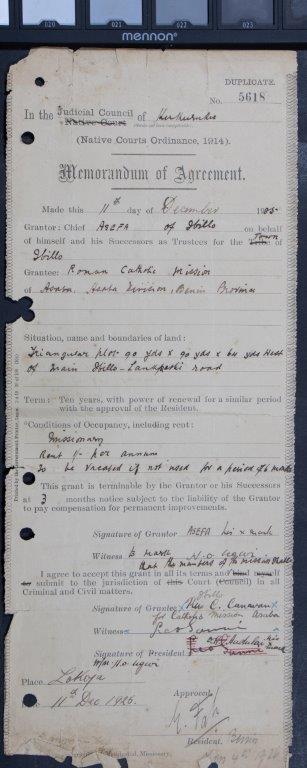 020 021 022 023
mennon
DUPLICATE.
No. 5618
In the Judicial Council of Kukuruku
Native Court
(Native Courts Ordinance, 1914).
Memorandum of Agreement.
Made this 11th day of December 1925
Grantor: Chief ASEFA of Ibillo on behalf
of himself and his Successors as Trustees for the Tribe Town of
Ibillo
Grantee: Roman Catholic Mission
of Asaba, Asaba Division, Benin Province
Situation, name and boundaries of land:
Triangular plot 90 yds x 90 yds x 64 yds West
of Main Ibillo- road
Term: Ten years, with power of renewal for a similar period
with the approval of the Resident.
Conditions of Occupancy, including rent:
Missionary
Rent 1/- per annum
To be vacated if not used for a period of 6 months
This grant is terminable by the Grantor or his Successors
at 3 months notice subject to the liability of the Grantor
to pay compensation for permanent improvements.
Signature of Grantor ASEFA his x mark
Witness to mark
that the members of the mission shall
I agree to accept this grant in all its terms and bind myself
or submit to the jurisdiction of this Court (Council) in all
Criminal and Civil matters.
Ibillo
Signature of Grantee x Rev C. x
for Catholic Mission Asaba
Witness
Signature of President his mark
Place Lokoja
11th Dec 1925.
Approved
Resident.